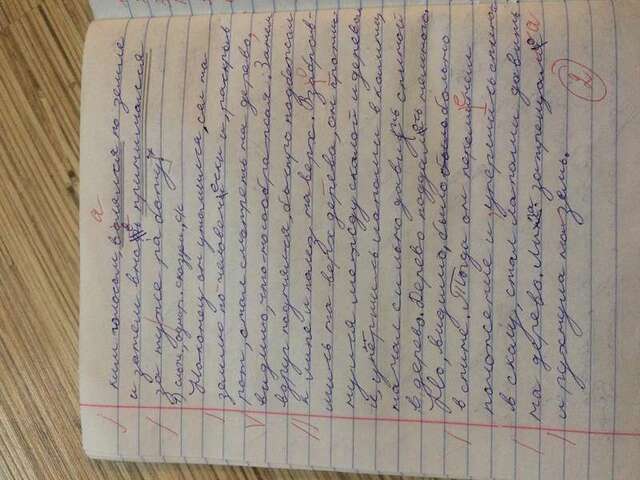 а
ким голосом, волялся по земле
и затем вновь принимался
за ту же работу 4
4) слож., однор. сказуем., с/с
Наконец он утомился, сел на
землю по-человечески и, раскрыв
рот, стал смотреть на дерево,
видимо, что-то соображая. Затем
вдруг поднялся, быстро подбежал
к липе и полез наверх. Взобрав-
шись на верх дерева, он протис-
нулся между скалой и деревом
и, упёршись лапами в камень,
начал сильно давить спиной
в дерево. Дерево поддалось немного.
Но, видимо, было было больно
в спине. Тогда он переменил
положение и, упершись спиной
в скалу, стал лапами давить
на дерево. Липа затрещала а
и рухнула на земь.
2